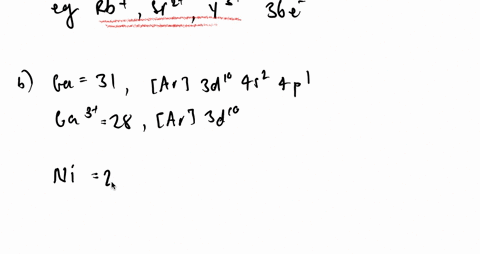 eg Rb⁺, Sr²⁺, Y³⁺ 36e⁻
b) Ga = 31, [Ar] 3d¹⁰ 4s² 4p¹
Ga³⁺ = 28, [Ar] 3d¹⁰
Ni = 2